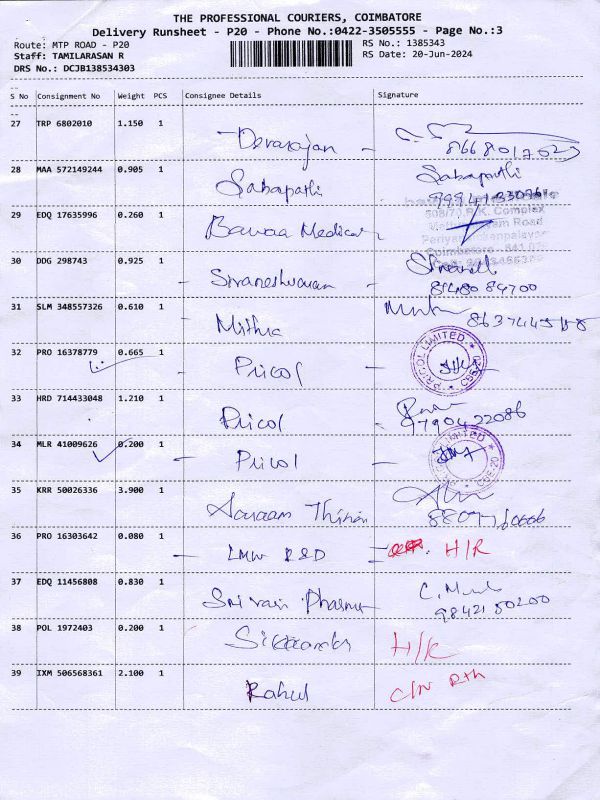 THE PROFESSIONAL COURIERS, COIMBATORE
Delivery Runsheet - P20 - Phone No.:0422-3505555 - Page No.:3
Route: MTP ROAD - P20
RS No.: 1385343
Staff: TAMILARASAN R
RS Date: 20-Jun-2024
DRS No.: DCJB138534303
S No Consignment No Weight PCS Consignee Details Signature
27 TRP 6802010 1.150 1
Devarajan
28 MAA 572149244 0.905 1
Sabapathi Sabapathi
29 EDQ 17635996 0.260 1
Bawaa Medical
30 DDG 298743 0.925 1
Sivaneshwaran
89700
31 SLM 348557326 0.610 1
Mithra
32 PRO 16378779 0.665 1
Pricol
PRICOL LIMITED CBE-20
33 HRD 714433048 1.210 1
Pricol
9790422086
34 MLR 41009626 0.200 1
Pricol
LIMITED CBE-20
35 KRR 50026336 3.900 1
36 PRO 16303642 0.080 1
LMW R&D H/R
37 EDQ 11456808 0.830 1
Sri Pharma
9842150200
38 POL 1972403 0.200 1
H/R
39 IXM 506568361 2.100 1
Rahul C/N Rth